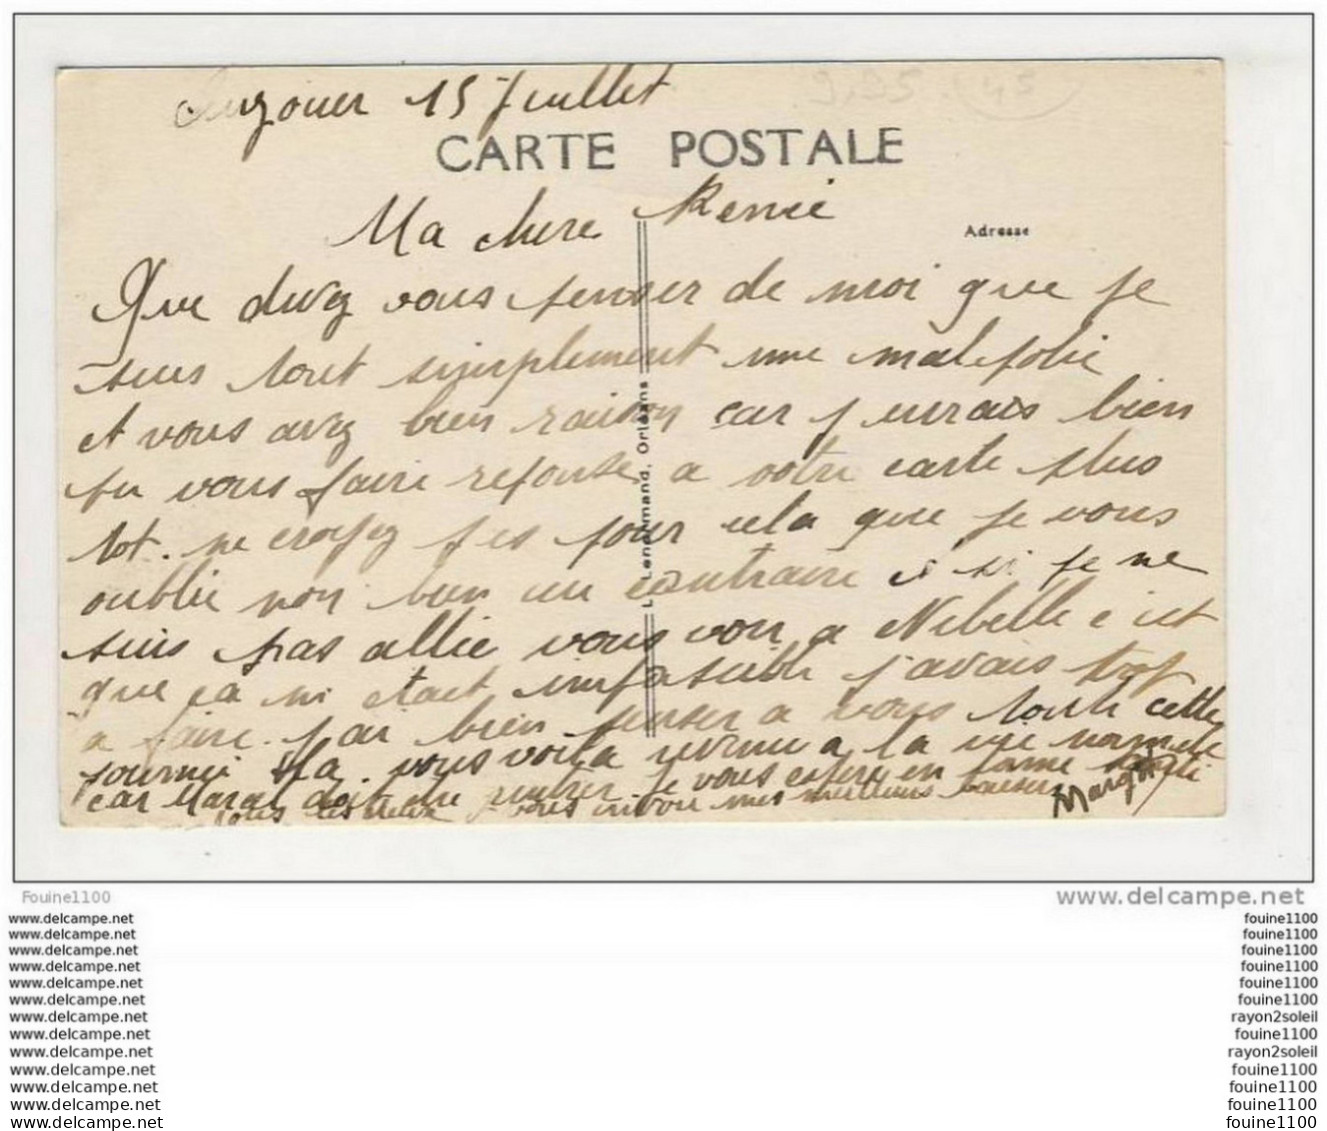 Ouzouer 15 Juillet
9.95 45
CARTE POSTALE
Ma chere Renée
Adresse
Que devez vous penser de moi que je
suis tout simplement une malpolie
et vous avez bien raison car j'eurais bien
pu vous faire reponse a votre carte plus
tot. ne croyez pas pour cela que je vous
oublie non bien un contraire et si je ne
suis pas allie vous voir a Nibelle c'est
que ca m'etait impasible j'avais trop
a faire. j'ai bien penser a vous toute cette
journee vous voila revenu a la vie normale
car Marcel doit etre rentrer je vous espere en bonne santé
tous les deux je vous envoie mes meilleurs baisers
Margot
L. Lenormand, Orléans
Fouine1100
www.delcampe.net
www.delcampe.net
www.delcampe.net
www.delcampe.net
www.delcampe.net
www.delcampe.net
www.delcampe.net
www.delcampe.net
www.delcampe.net
www.delcampe.net
www.delcampe.net
www.delcampe.net
www.delcampe.net
www.delcampe.net
fouine1100
fouine1100
fouine1100
fouine1100
fouine1100
fouine1100
rayon2soleil
fouine1100
rayon2soleil
fouine1100
fouine1100
fouine1100
fouine1100